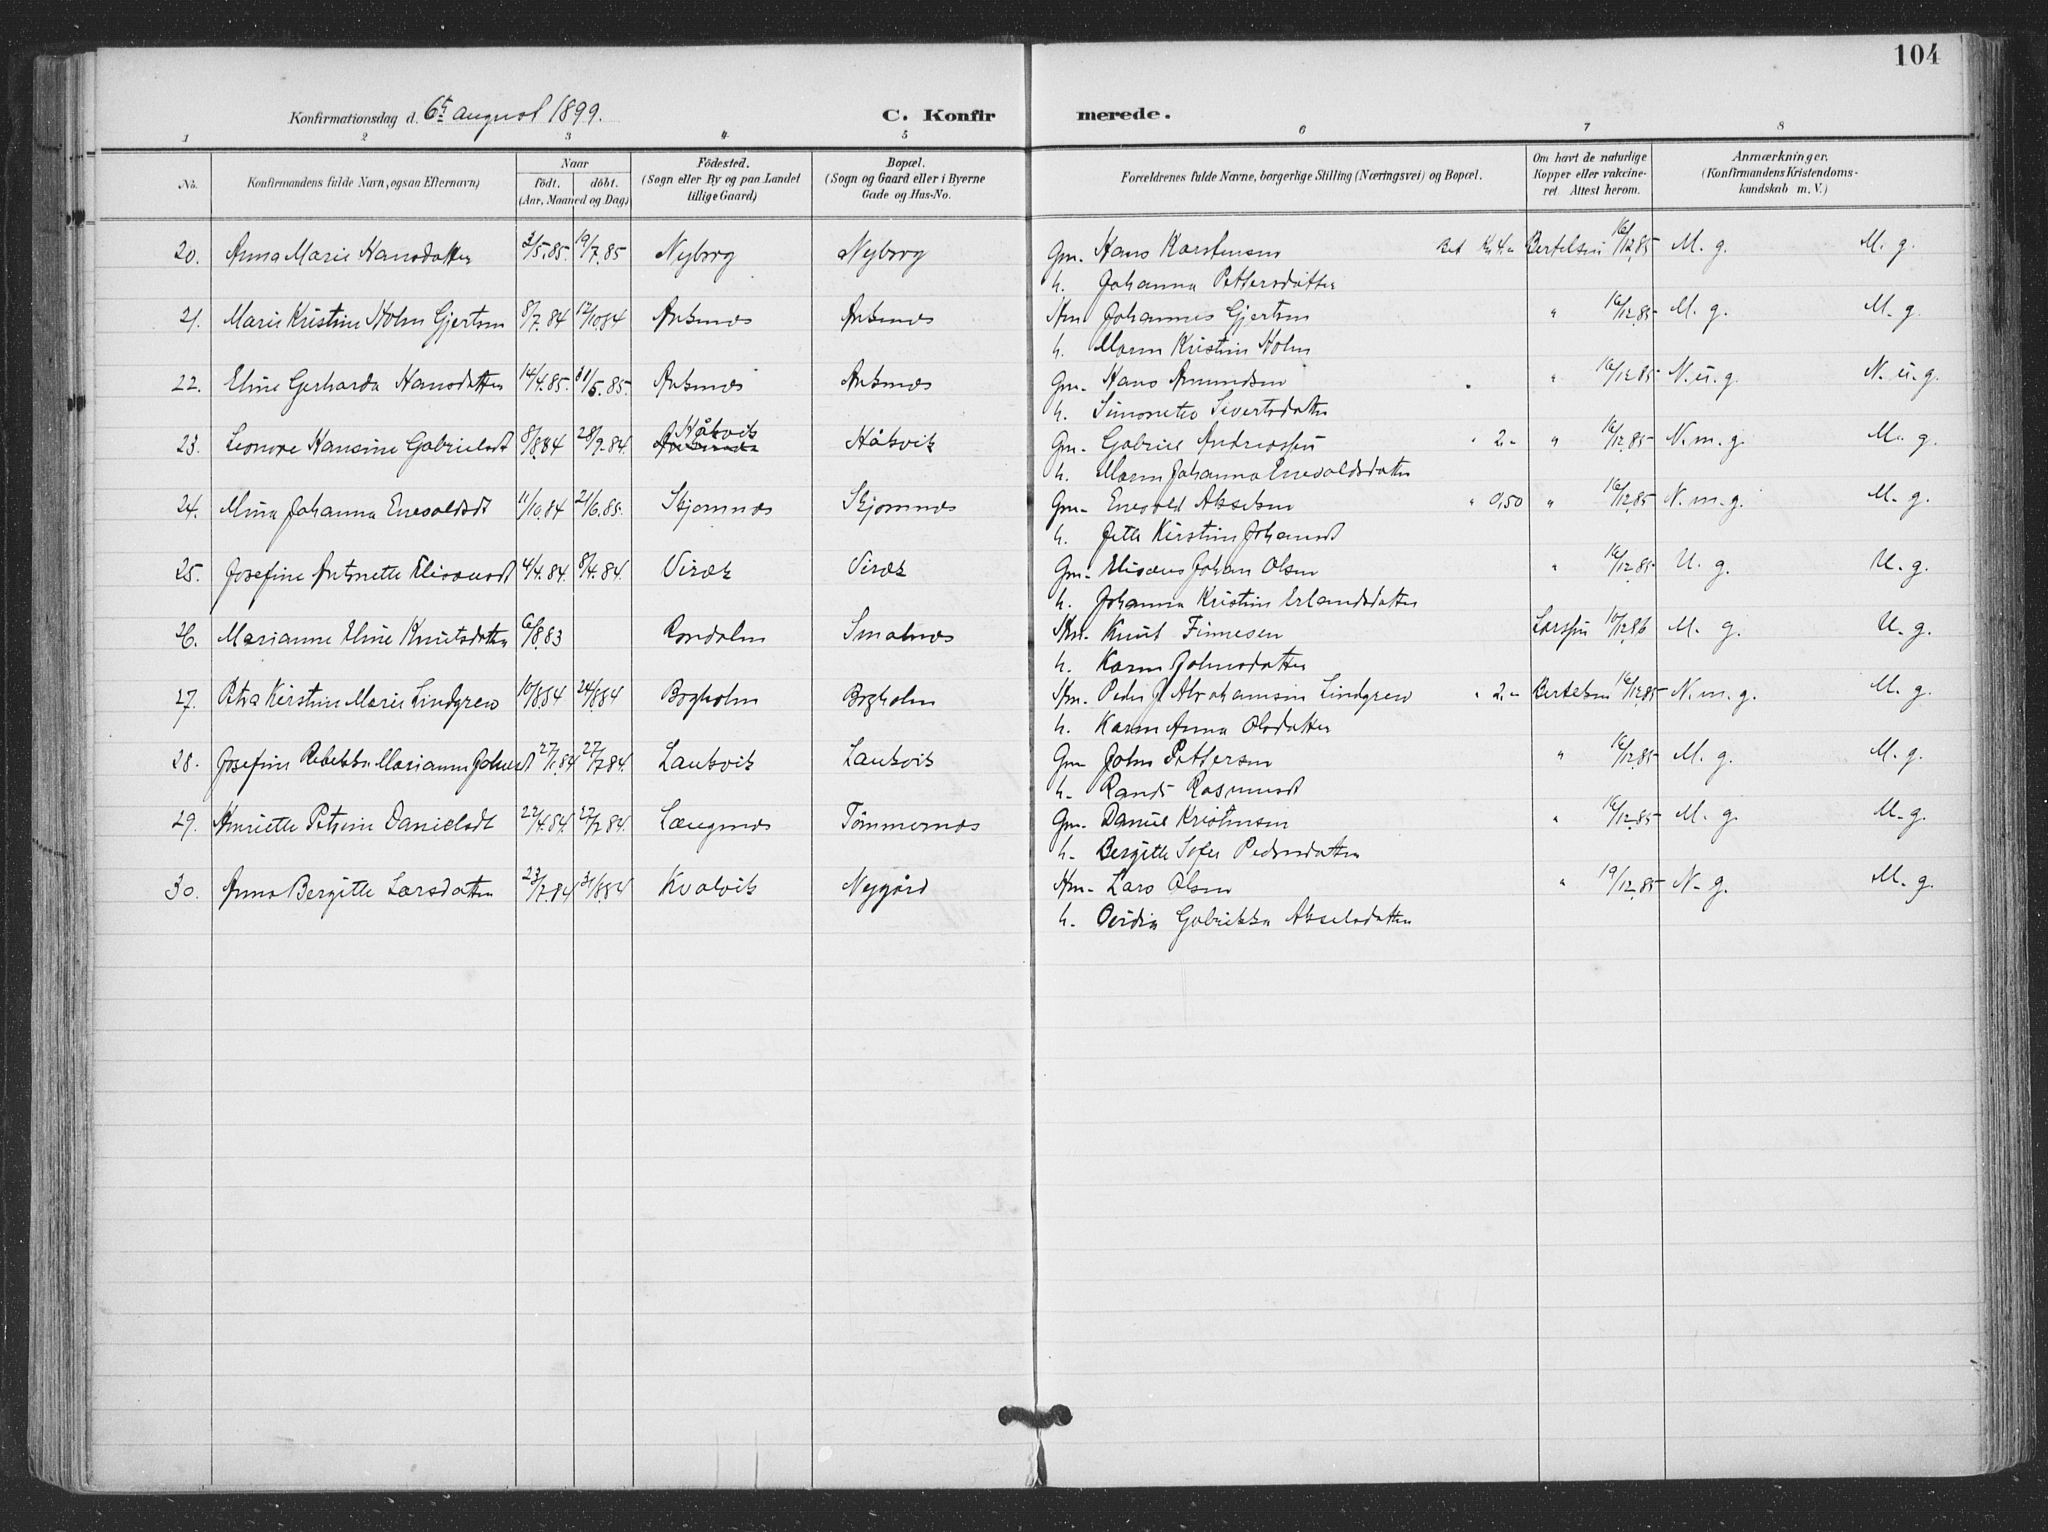 104
Konfirmationsdag d. 6te august 1899.
C. Konfirmerede.
1 2 3 4 5 6 7 8
No.
Konfirmandens fulde Navn, ogsaa Efternavn)
Naar
födt. döbt.
(Aar, Maaned og Dag)
Födested.
(Sogn eller By og paa Landet
tillige Gaard)
Bopæl.
(Sogn og Gaard eller i Byerne
Gade og Hus-No.
Forældrenes fulde Navne, borgerlige Stilling (Næringsvei) og Bopæl.
Om havt de naturlige
Kopper eller vakcine-
ret Attest herom.
Anmærkninger.
(Konfirmandens Kristendoms-
kundskab m. V.)
20. Anna Marie Hansdatter 3/5.85. 19/7.85 Nyborg Nyborg Gm. Hans Karstensen Bet Kr 4.- Bertelsen 16/12.85 M. g. M. g.
h. Johanna Pettersdatter
21. Marie Kristine Holm Gjertsen 8/7.84 12/10 84 Ankenes Ankenes Stm Johannes Gjertsen " 16/12.85 M. g. M. g.
h. Maren Kristin Holm
22. Eline Gerharda Hansdatter 14/4.85. 31/5.85. Ankenes Ankenes Gm. Hans Amundsen " 16/12.85 N. u. g. N. u. g.
h. Simonette Sivertsdatter
23. Leonore Hansine Gabrielsdt 8/8.84 28/9.84. Håkvik Håkvik Gm. Gabriel Andreassen " 2.- " 16/12.85 N. m. g. M. g.
h. Maren Johanna Enevoldsdatter
24. Mina Johanna Enevoldsdt 11/10.84 21/6.85. Skjomnes Skjomnes Gm. Enevold Akselsen " 0,50 " 16/12.85 N. m. g. M. g.
h. Jette Kirstine Johansdt
25. Josefine Antonette Elisæusdt 4/4.84. 8/4.84. Virek Virek Gm. Elisæus Johan Olsen " 16/12.85 U. g. U. g.
h. Johanna Kristine Erlandsdatter
26. Marianne Eline Knutsdatter 6/8.83 Rondalen Smalnes Stm. Knut Finnesen Larssen 10/12.86 M. g. U. g.
h. Karen Johnsdatter
27. Petra Kirstine Marie Lindgren 10/8.84 24/8.84 Borgholm Borgholm Stm. Peder J. Abrahamsen Lindgren " 2.- Bertelsen 16/12.85 N. m. g. M. g.
h. Karen Anna Olsdatter
28. Josefine Rebekka Marianne Johnsdt 27/1.84 27/7.84. Lankvik Lankvik Gm John Pettersen " 16/12.85 M. g. M. g.
h. Randi Rasmusdt
29. Henriette Petrine Danielsdt 22/4.84. 27/7.84. Længenes Tömmernes Gm. Daniel Kristensen " 16/12.85 M. g. M. g.
h. Bergitte Sofie Pedersdatter
30. Anna Bergitte Larsdatter 23/7.84 31/8.84 Kvalvik Nygård Stm. Lars Olsen " 19/12.85 N. g. M. g.
h. Ovidia Gabrikka Akselsdatter